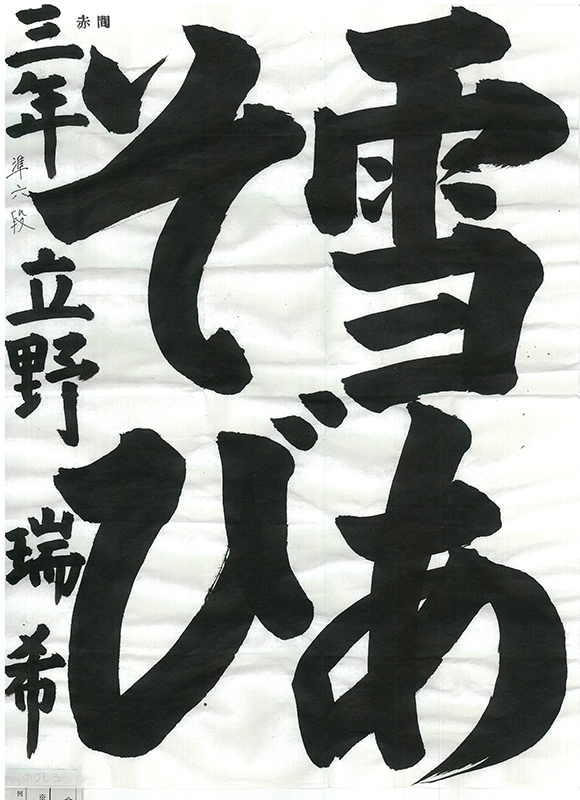 雪あ
そび
赤間
三年 立野 瑞希
準六段